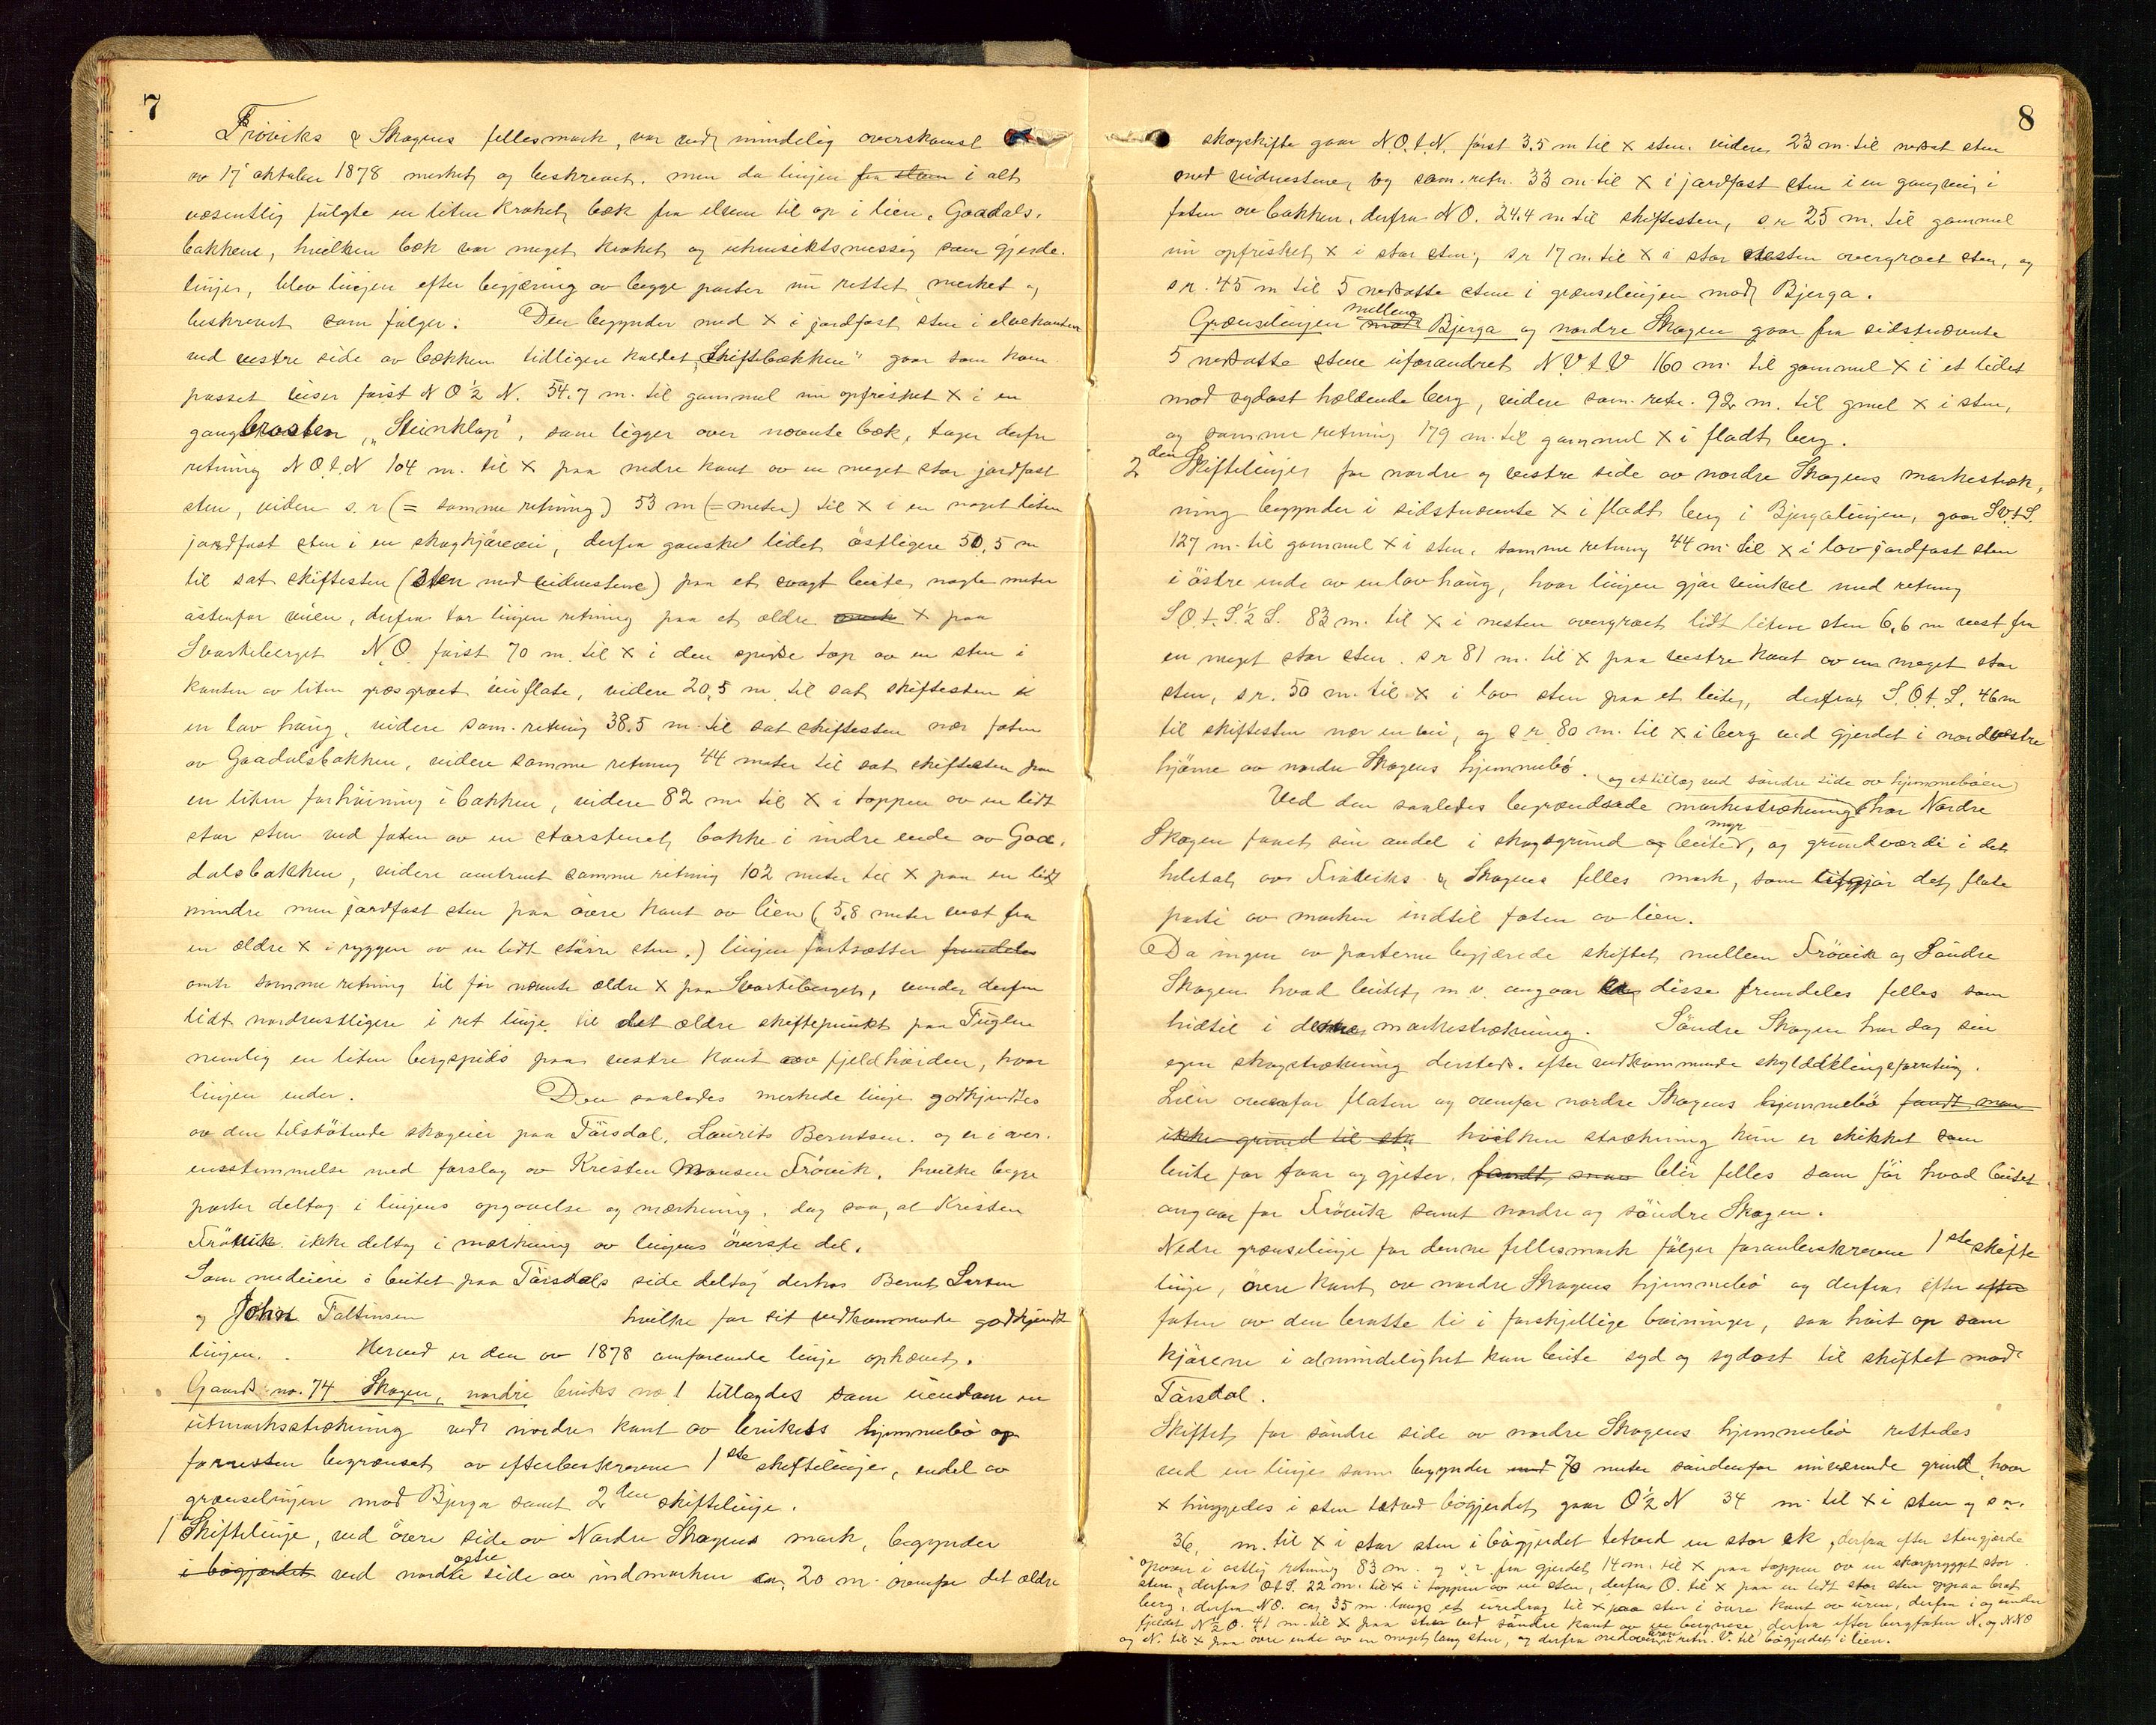 7
Frøviks & Skogens fellesmark, var ved mindelig overskomst
av 17 oktober 1878 merket og beskrevet, men da linjen fra elven i alt
væsentlig fulgte en liten kroket bæk fra elven til op i lien, Goadals-
bakkene, hvilken bæk var meget kroket og uhensiktsmessig som gjerde-
linje, blev linjen efter begjæring av begge parter nu rettet, merket og
beskrevet som følger: Den begynder med X i jordfast sten i elvekanten
ved vestre side av bækken tidligere kaldet "Skiftsbækken" gaar som kom-
passet viser først NO ½ N. 54.7 m. til gammel nu opfrisket X i en
gangbrosten "Steinklop", som ligger over nævnte bæk, tager derfra
retning N.O.t.N 104 m. til X paa nedre kant av en meget stor jordfast
sten, videre s.r (= samme retning) 53 m (= meter) til X i en noget liten
jordfast sten i en skogkjørevei, derfra ganske lidet østligere 50,5 m
til sat skiftesten (Sten med vidnestene) paa et svagt leite, nogle meter
østenfor veien, derfra tar linjen retning paa et ældre X paa
Svarteberget N.O. først 70 m. til X i den spidse top av en sten i
kanten av liten græsgroet veiflate, videre 20,5 m. til sat skiftesten i
en lav haug, videre sam. retning 38.5 m. til sat skiftesten nær foten
av Goadalsbakken, videre samme retning 44 meter til sat skiftesten paa
en liten forhøining i bakken, videre 82 m til X i toppen av en lidt
stor sten ved foten av en storstenet bakke i indre ende av Goa-
dalsbakken, videre omtrent samme retning 102 meter til X paa en lidt
mindre men jordfast sten paa øvre kant av lien (5,8 meter vest fra
en ældre X i ryggen av en lidt større sten.) linjen fortsætter fremdeles
omtr. samme retning til før nævnte ældre X paa Svarteberget, vender derfra
lidt nordvestligere i ret linje til det ældre skiftepunkt paa Fuglen
nemlig en liten bergspids paa vestre kant av fjeldhøiden, hvor
linjen ender. Den saaledes merkede linje godkjendtes
av den tilstøtende skogeier paa Tårsdal, Laurits Berntsen. og er i over-
ensstemmelse med forslag av Kristen Monsen Frøvik, hvilke begge
parter deltog i linjens opgaaelse og mærkning, dog saa, at Kristen
Frøvik ikke deltog i mærkning av linjens øverste del.
Som medeiere i beitet paa Tårsdals side deltog derhos Bernt Larsen
og Johan Taltinsen hvilke for sit vedkommende godkjendt
linjen. Herved er den av 1878 omforenede linje ophævet.
Gaards no. 74 Skogen, nordre bruks no 1 tillagdes som eiendom en
utmarksstrækning ved nordre kant av brukets hjemmebø og
forresten begrænset av efterbeskrevne 1ste skiftelinje, endel av
grænselinjen mod Bjerga samt 2den skiftelinje.
1 Skiftelinje, ved øvre side av Nordre Skogens mark, begynder
i bøgjærdet ved nordre østre side av indmarken ca. 20 m. ovenfor det ældre
8
skogskifte gaar N.O.t.N. først 3.5 m til X sten. videre 23 m. til nedsat sten
med vidnestene, og sam. retn. 33 m. til X i jordfast sten i en gangvei i
foten av bakken, derfra NO. 24.4 m til skiftesten, s.r 25 m. til gammel
nu opfrisket X i stor sten, s r 17 m. til X i stor næsten overgroet sten, og
s r. 45 m til 5 nedsatte stene i grænselinjen mod Bjerga.
Grænselinjen mod mellem Bjerga og nordre Skogen gaar fra sidstnævnte
5 nedsatte stene uforandret N V t V 160 m. til gammel X i et lidet
mod sydost hældende berg, videre sam. retn. 92 m. til gmel X i sten,
og samme retning 179 m. til gammel X i fladt berg.
2den Skiftelinje for nordre og vestre side av nordre Skogens markestræk-
ning begynder i sidstnævnte X i fladt berg i Bjergalinjen, gaar S.V.t.S.
127 m. til gammel X i sten, samme retning 44 m. til X i lav jordfast sten
i østre ende av en lav haug, hvor linjen gjør vinkel med retning
S.O.t.S.½ S. 83 m. til X i nesten overgroet lidt liten sten 6,6 m vest fra
en meget stor sten. s r 81 m. til X paa vestre kant av en meget stor
sten, s r. 50 m. til X i lav sten paa et leite, derfra S.O.t.S. 46 m
til skiftesten nær en vei, og s r 80 m. til X i berg ved gjerdet i nordvestre
hjørne av nordre Skogens hjemmebø. (og et tillæg ved søndre side av hjemmebøen)
Ved den saaledes begrændsede markestrækning har Nordre
Skogen faaet sin andel i skogsgrund og myr beitet, og grundværdi i det
heletat av Frøviks & Skogens felles mark, som utgjør det flate
parti av marken indtil foten av lien.
Da ingen av parterne begjærede skiftet mellem Frøvik og Søndre
Skogen hvad beitet m.v. angaar er disse fremdeles felles som
hidtil i denne markestrækning. Søndre Skogen har dog sin
egen skogstrækning dersteds. efter vedkommende skylddelingsforretning.
Lien ovenfor flaten og ovenfor nordre Skogens hjemmebø fandt man
ikke grund til at hvilken strækning kun er skikket som
beite for faar og gjeter, fandt man blir felles som før hvad beitet
angaar for Frøvik samt nordre og søndre Skogen.
Nedre grænselinje for denne fellesmark følger foranbeskrevne 1ste skifte
linje, øvre kant av nordre Skogens hjemmebø og derfra efter efter
foten av den bratte li i forskjellige bøininger, saa høit op som
kjørene i almindelighet kan beite syd og sydost til skiftet mod
Tårsdal.
Skiftet for søndre side av nordre Skogens hjemmebø rettedes
ved en linje som begynder med 70 meter søndenfor nuværende grind, hvor
X huggedes i sten tætved bøgjerdet, gaar O ½ N 34 m. til X i sten og s r.
36, m. til X i stor sten i bøgjerdet tetved en stor ek, derfra efter stengjærde
opover i østlig retning 83 m. og s.r fra gjerdet 14 m. til X paa toppen av en skarprygget stor
sten, derfra O.t.S. 22 m. til X i toppen av en sten, derfra O. til X paa en lidt stor sten oppaa brat
berg, derfra NO. ca. 35 m. langs et uredrag til X paa sten i øvre kant av uren, derfra i og under
fjeldet N ½ O. 41 m. til X paa sten ved søndre kant av en bergnese, derfra efter bergfoten N. og NNO
og N. til X paa øvre ende av en meget lang sten, og derfra nedover i retn. V. til bøgjerdet i lien.